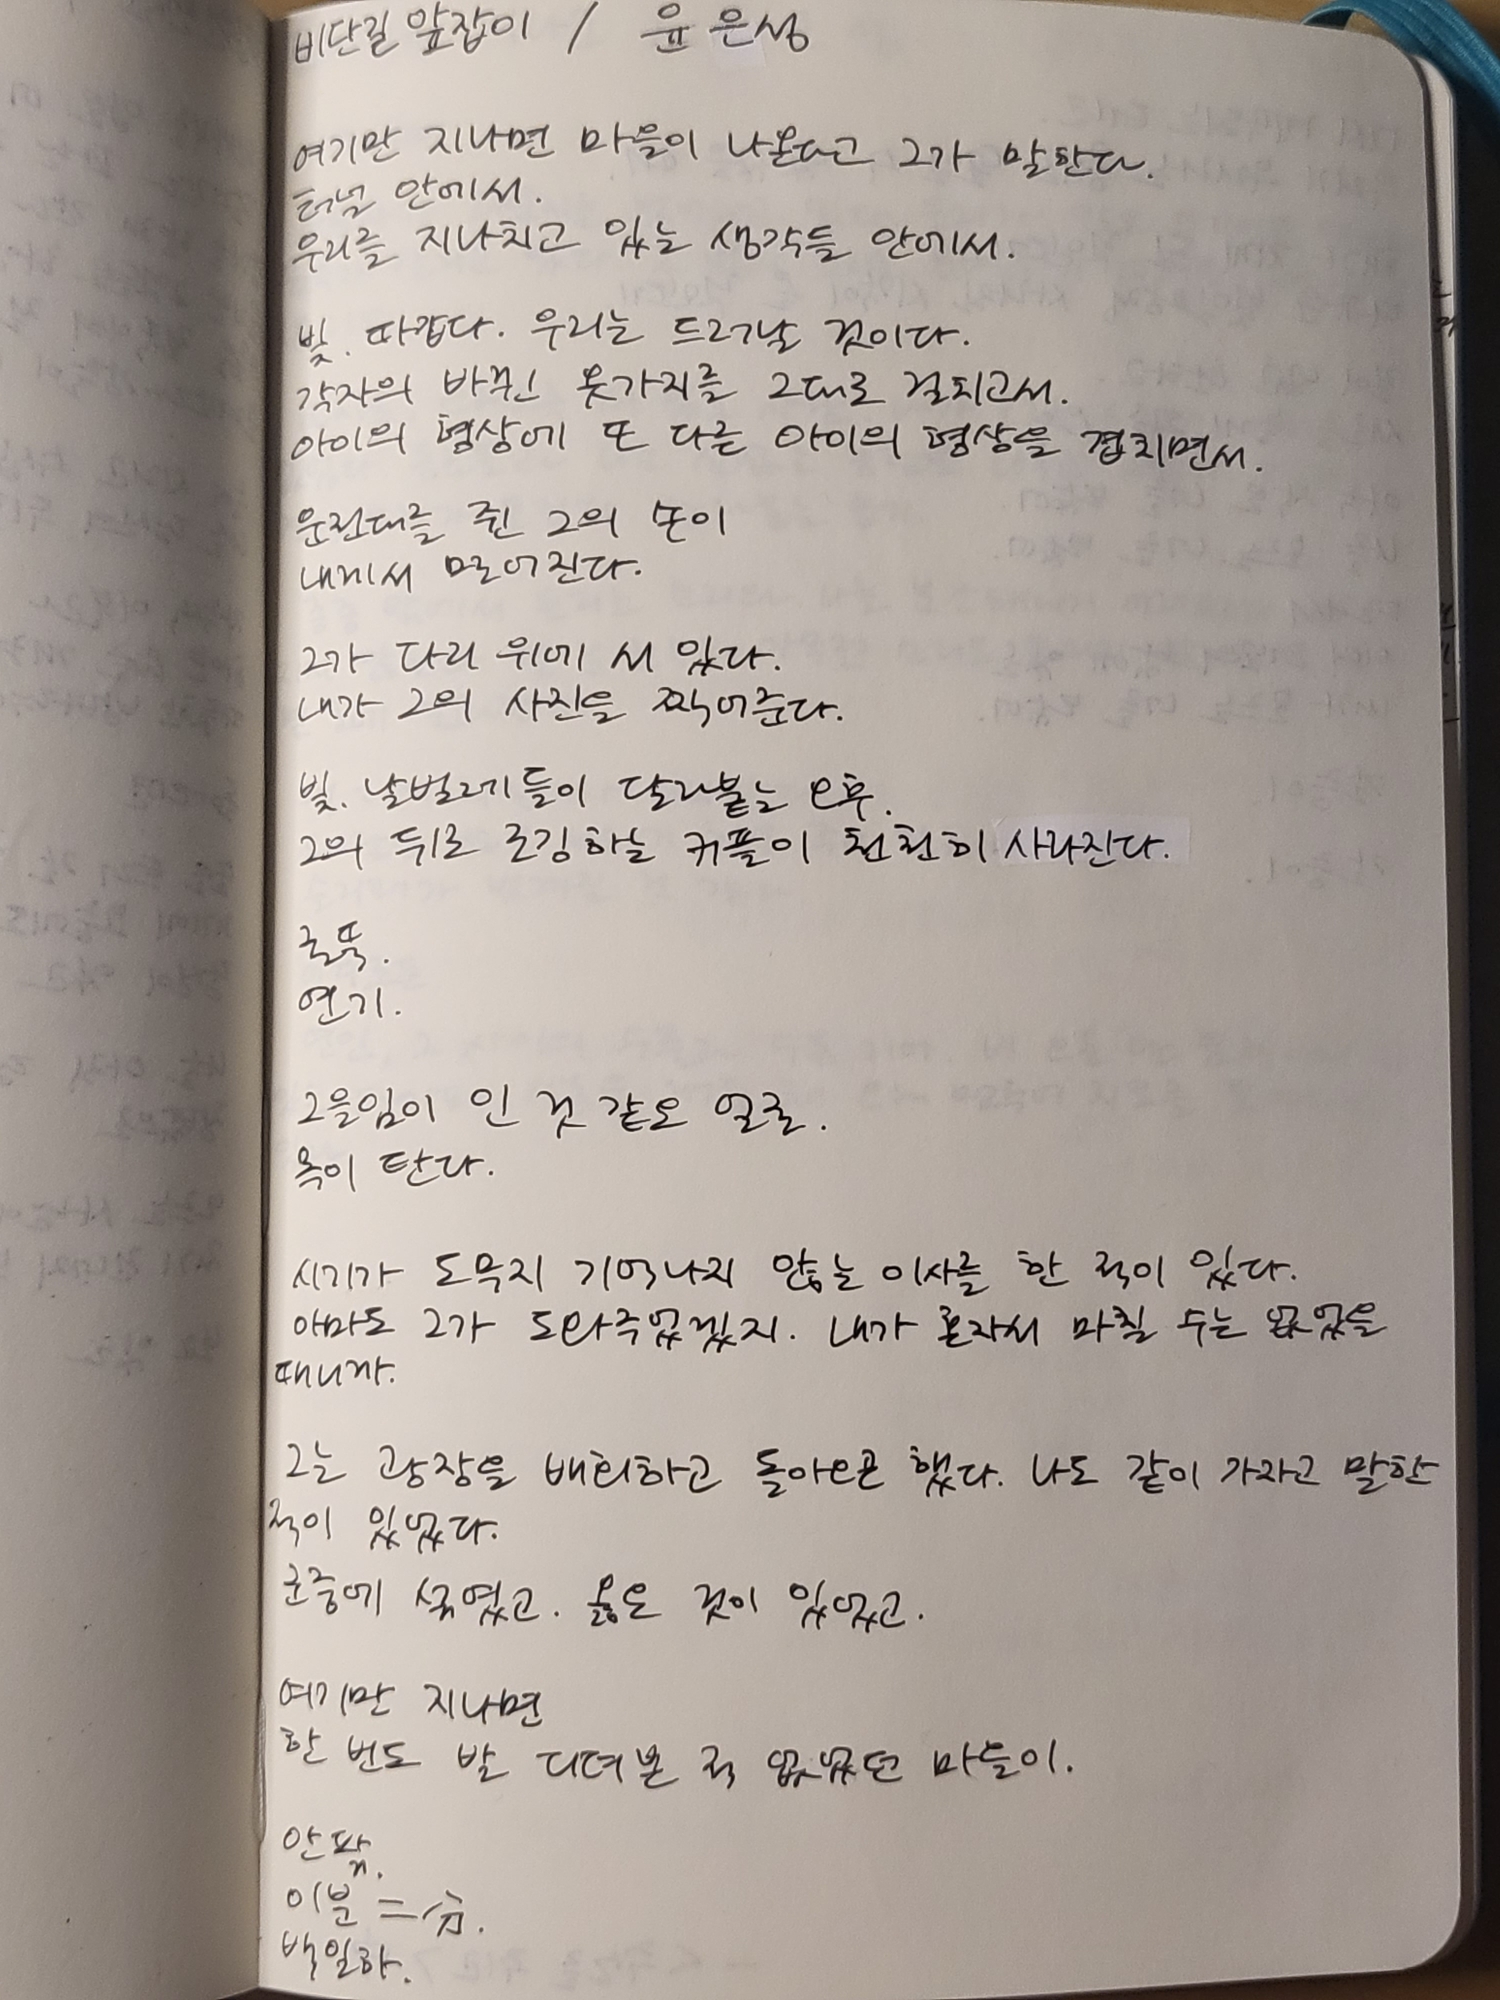 비단길 앞잡이 / 윤은성
여기만 지나면 마을이 나온다고 그가 말한다.
터널 안에서.
우리를 지나치고 있는 생각들 안에서.
빛. 따갑다. 우리는 드러날 것이다.
각자의 바뀐 옷가지를 그대로 걸치고서.
아이의 형상에 또 다른 아이의 형상을 겹치면서.
운전대를 쥔 그의 손이
내게서 멀어진다.
그가 다리 위에 서 있다.
내가 그의 사진을 찍어준다.
빛. 날벌레들이 달라붙는 오후.
그의 뒤로 조깅하는 커플이 천천히 사라진다.
굴뚝.
연기.
그을임이 인 것 같은 얼굴.
목이 탄다.
시기가 도무지 기억나지 않는 이사를 한 적이 있다.
아마도 그가 도와주었겠지. 내가 혼자서 마칠 수는 없었을
테니까.
그는 광장을 배회하고 돌아오곤 했다. 나도 같이 가자고 말한
적이 있었다.
군중에 섞였고. 옳은 것이 있었고.
여기만 지나면
한 번도 발 디뎌본 적 없었던 마을이.
안팎.
이분 二分.
백일하.